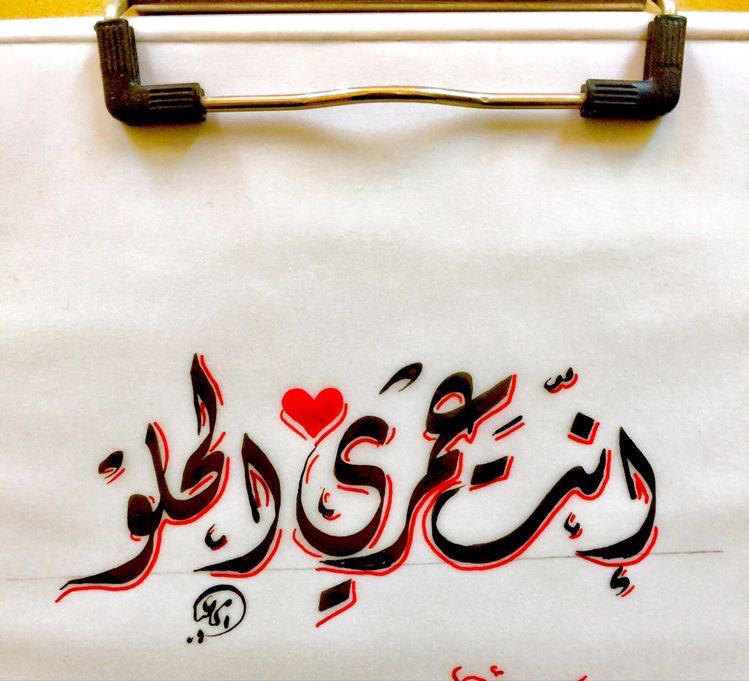 إنت عمري الحلو